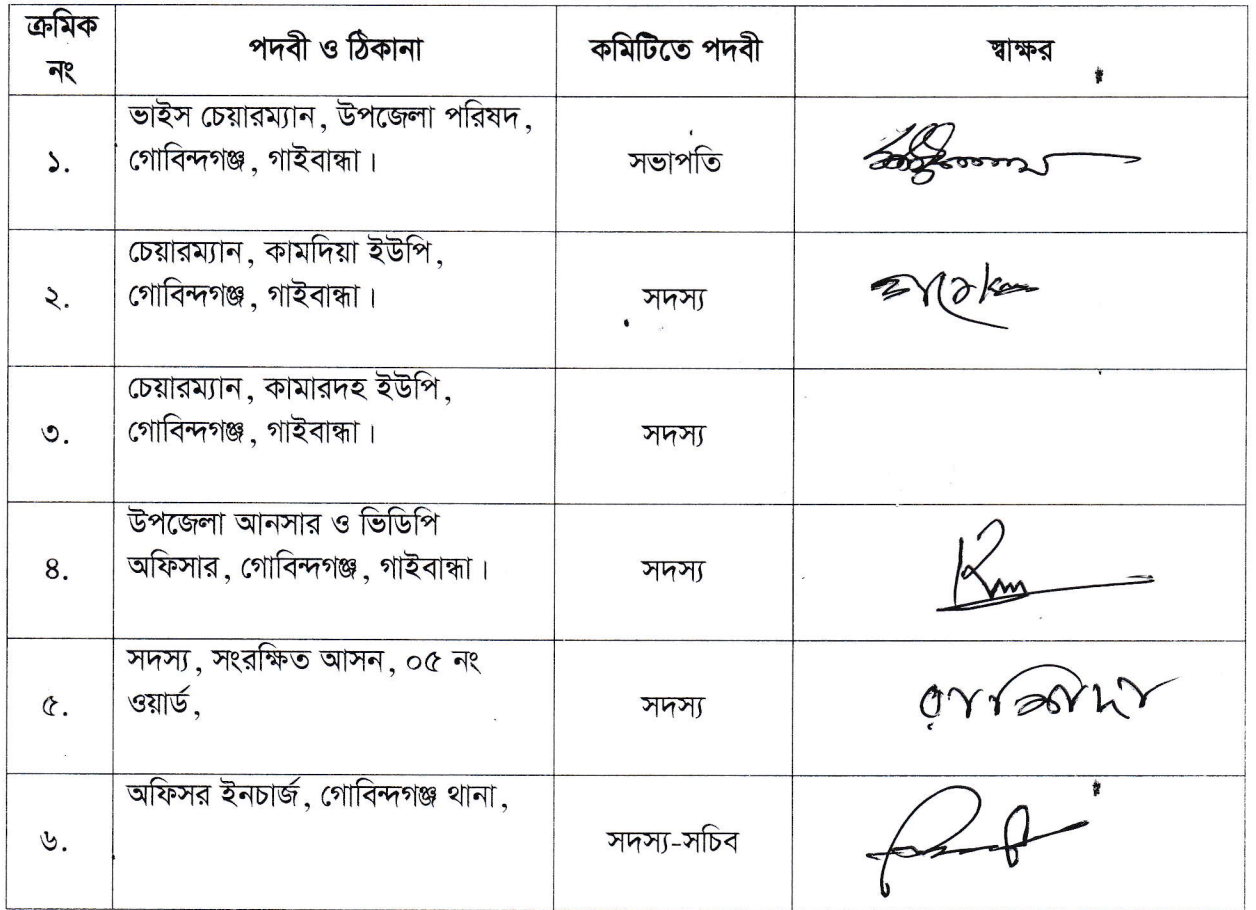 ক্রমিক নং পদবী ও ঠিকানা কমিটিতে পদবী স্বাক্ষর
১. ভাইস চেয়ারম্যান, উপজেলা পরিষদ,
গোবিন্দগঞ্জ, গাইবান্ধা। সভাপতি
২. চেয়ারম্যান, কামদিয়া ইউপি,
গোবিন্দগঞ্জ, গাইবান্ধা। সদস্য
৩. চেয়ারম্যান, কামারদহ ইউপি,
গোবিন্দগঞ্জ, গাইবান্ধা। সদস্য
৪. উপজেলা আনসার ও ভিডিপি
অফিসার, গোবিন্দগঞ্জ, গাইবান্ধা। সদস্য
৫. সদস্য, সংরক্ষিত আসন, ০৫ নং
ওয়ার্ড, সদস্য
৬. অফিসর ইনচার্জ, গোবিন্দগঞ্জ থানা,
সদস্য-সচিব